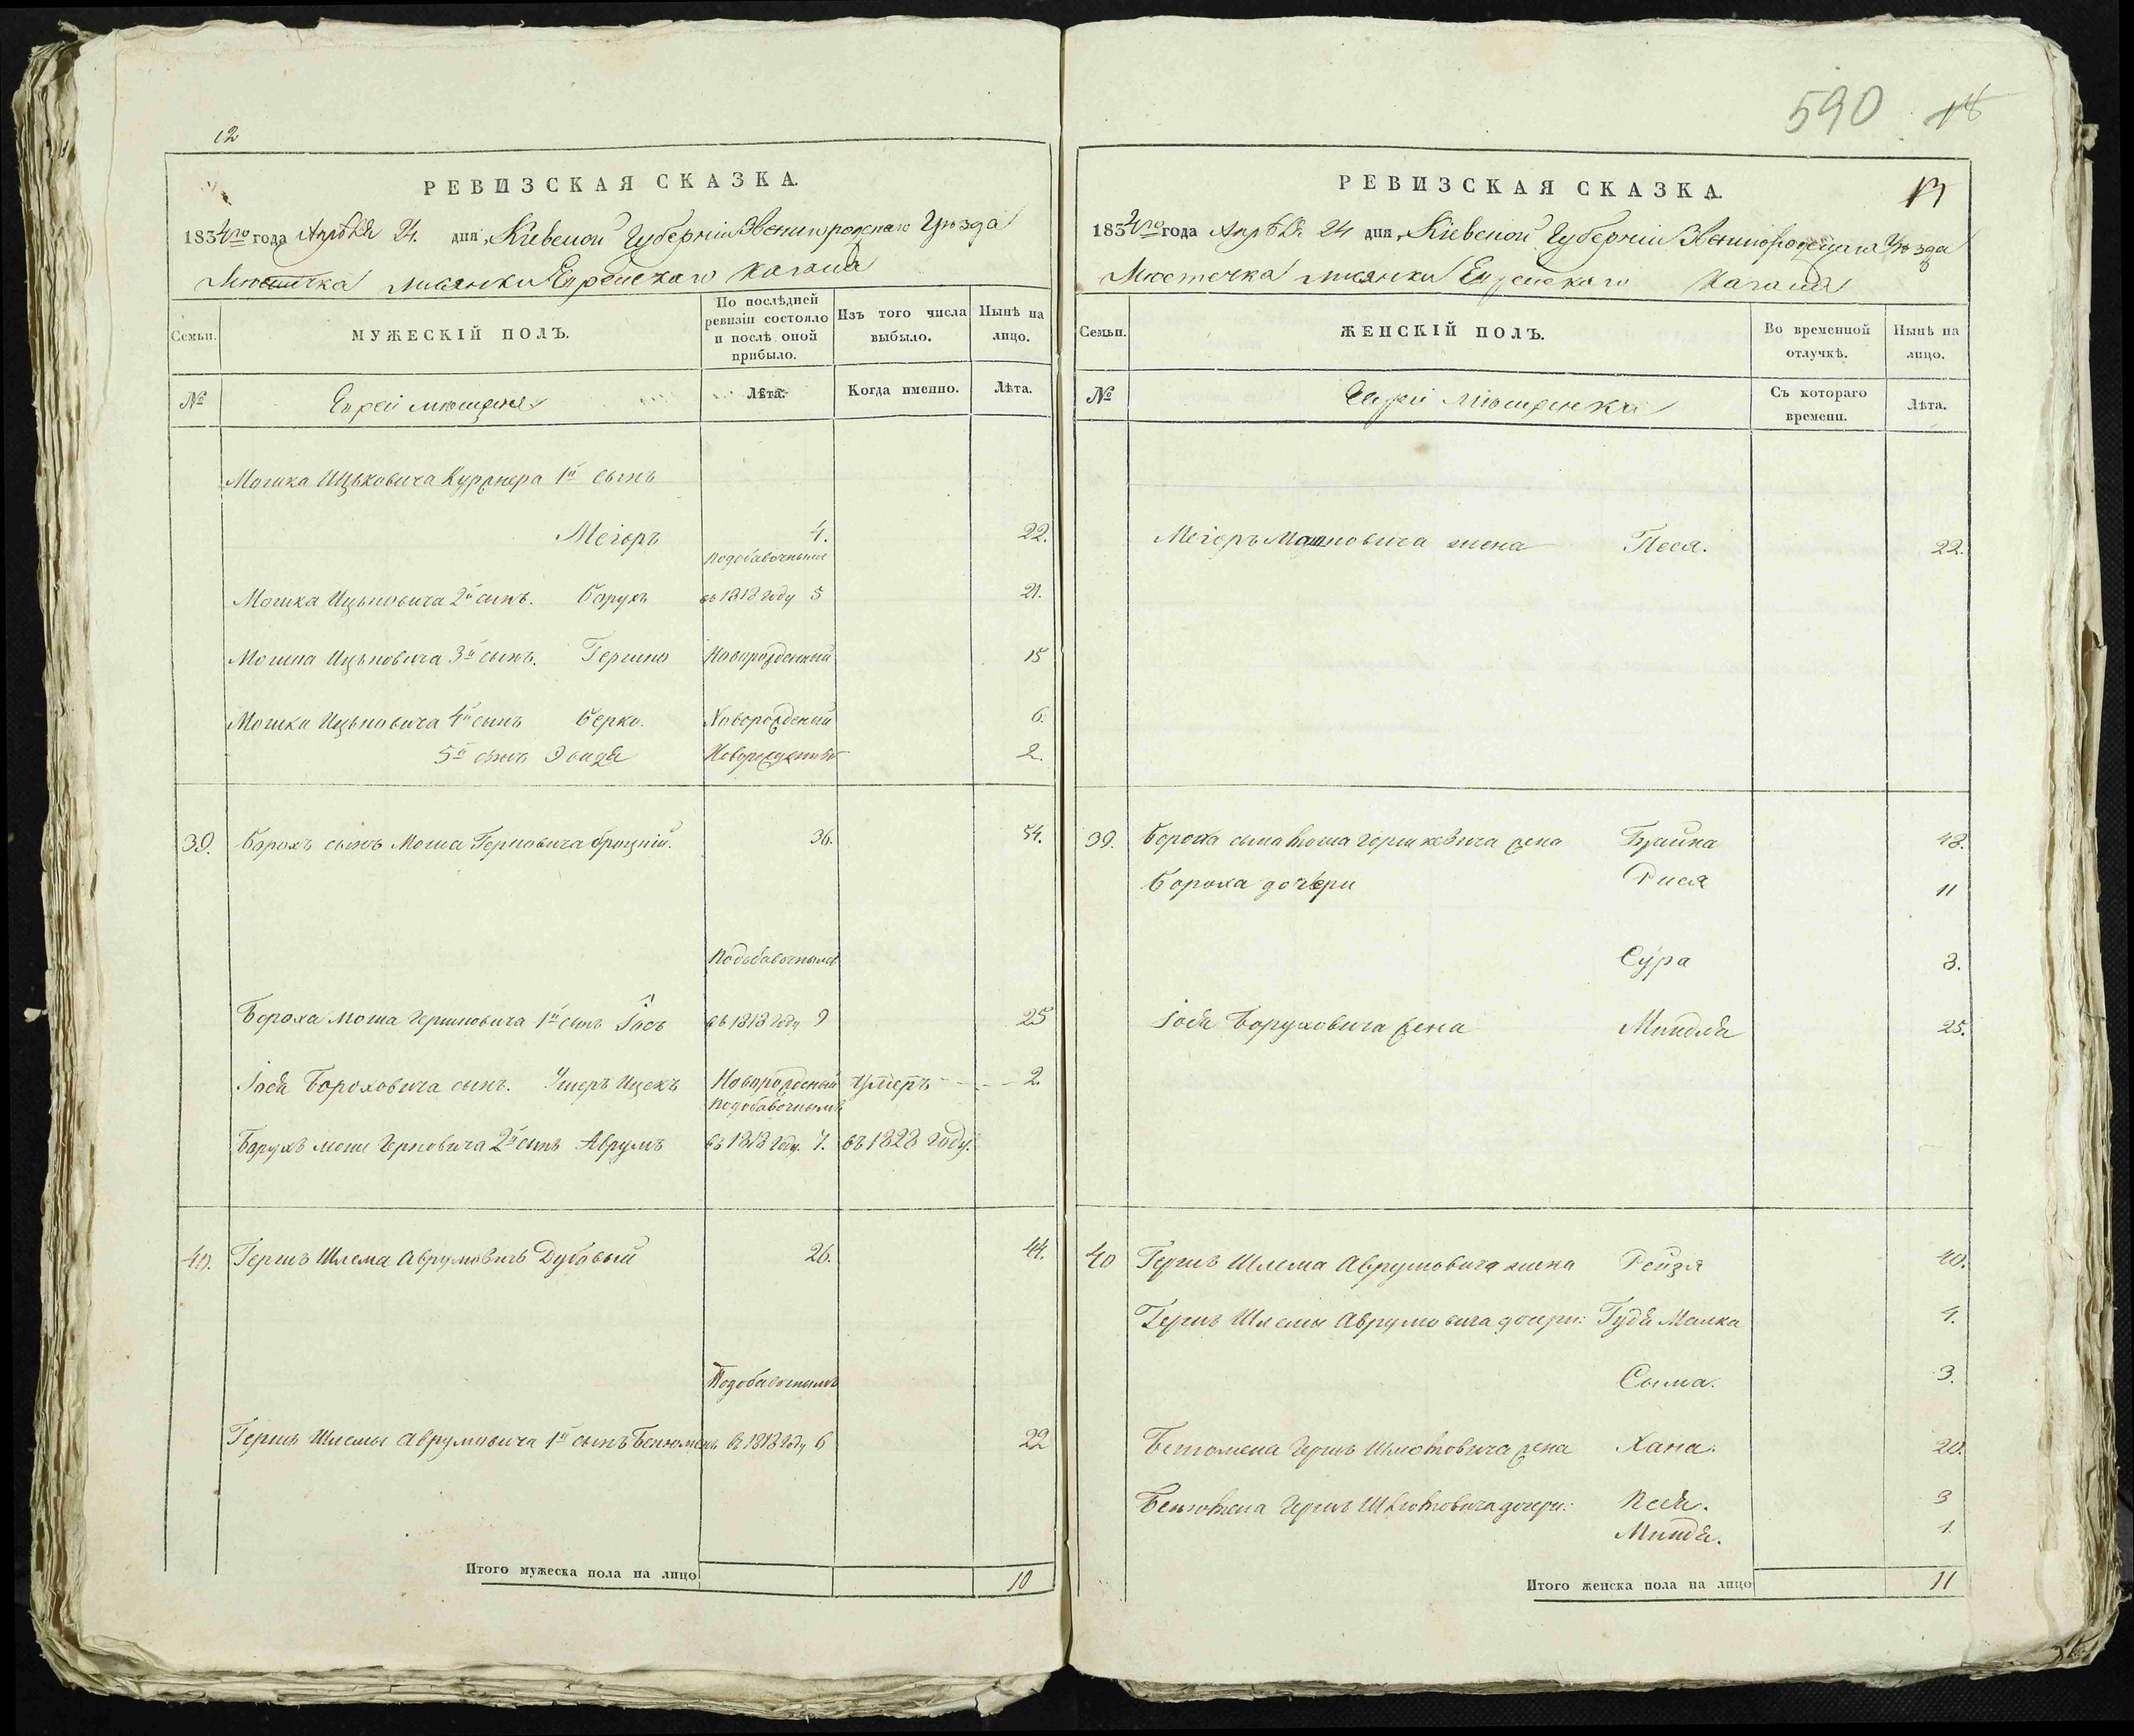 12
РЕВИЗСКАЯ СКАЗКА.
1834го года Апреля 24. дня, Киевской Губернии Звенигородского Уезда
Местечка Лисянки Еврейскаго Кагала
Семьи.
МУЖЕСКІЙ ПОЛЪ.
По послѣдней ревизіи состояло и послѣ оной прибыло.
Изъ того числа выбыло.
Нынѣ на лицо.
№
Евреи мещане
Лѣта.
Когда именно.
Лѣта.
Мошка Ицьковича 1й сынъ
Меіоръ 4. 22.
подобавочнымъ
Мошка Ицьковича 2й сынъ. Барухъ въ 1818 году 5 21.
Мошка Ицьковича 3й сынъ. Гершко Новорожденный 15
Мошка Ицьковича 4й сынъ Берко. Новорожденый 6.
5й сынъ Новорожденый 2.
39. Борохъ сынъ Моша Герковича Броцкій. 36. 54.
Подобавочнымъ
Бороха Моша Гершковича 1й сынъ Іосъ въ 1818 году 9 25
Іося Бороховича сынъ. Ушеръ Ицекъ Новорожденый умеръ 2.
подобавочнымъ
Барухъ Моше Герковича 2й сынъ Аврумъ въ 1818 году. 7. въ 1828 году.
40. Гершъ Шлема Аврумовичъ Дубовый 26. 44.
Подобавочнымъ
Гершъ Шлемы Аврумовича 1й сынъ Бенюменъ въ 1818 году 6 22
Итого мужеска пола на лицо 10
590 18
13
РЕВИЗСКАЯ СКАЗКА.
1834го года Апреля 24 дня, Киевской Губерніи Звенигородскаго Уезда
Местечка Лисянки Еврейскаго Кагала
Семьи.
ЖЕНСКІЙ ПОЛЪ.
Во временной отлучкѣ.
Нынѣ на лицо.
№
Евреи Мещанки
Съ котораго времени.
Лѣта.
Меіоръ Мошковича жена Песя. 22.
39. Бороха сына Моша Гершковича жена 48.
Бороха дочери Рися 11
Сура 3.
Іося Боруховича жена Миндля 25.
40 Гершъ Шлема Аврумовича жена Рейзя 40.
Гершъ Шлемы Аврумовича дочери: Гудя Малка 4.
Сыма. 3.
Бенюмена Гершъ Шлемовича жена Хана. 20.
Бенюмена Гершъ Шлемовича дочери: Песя. 3
Миндя. 1.
Итого женска пола на лицо 11